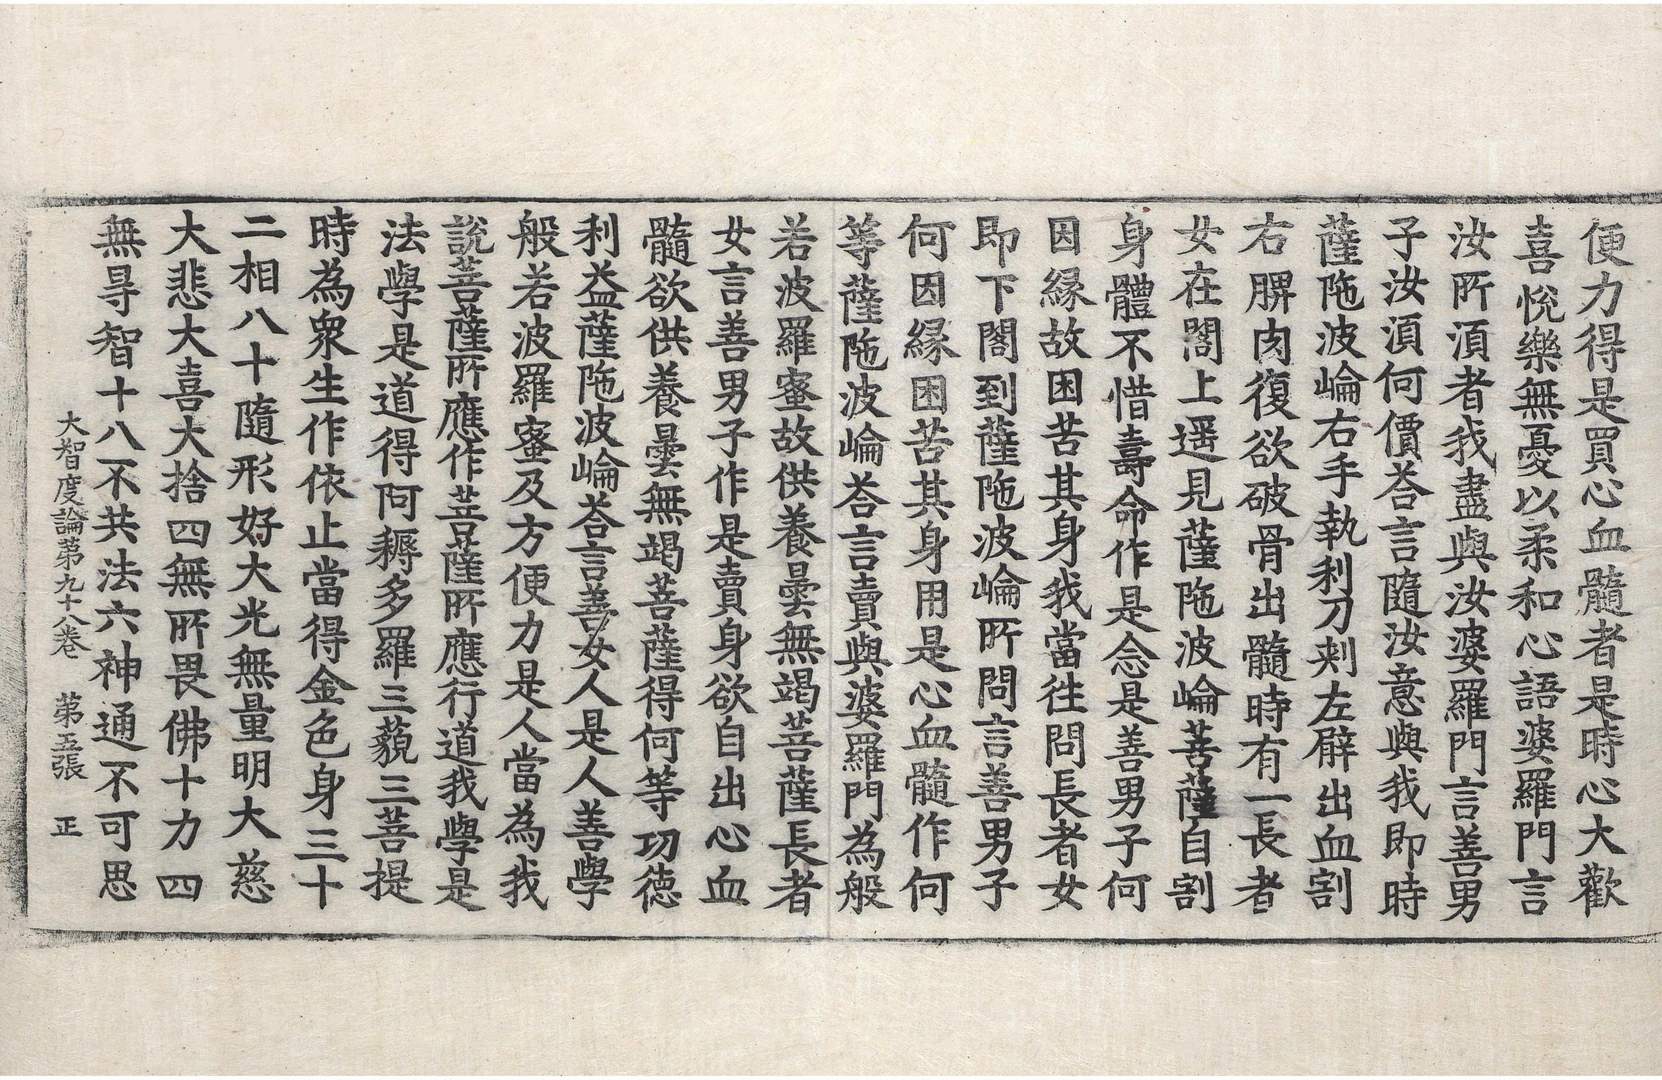 便力得是買心血髓者是時心大歡
喜悅樂無憂以柔和心語婆羅門言
汝所湏者我盡與汝婆羅門言善男
子汝湏何價荅言隨汝意與我即時
薩陁波崘右手執利刀刾左臂出血割
右髀肉復欲破骨出髓時有一長者
女在閣上遥見薩陁波崘菩薩自割
身體不惜壽命作是念是善男子何
因縁故困苦其身我當往問長者女
即下閣到薩陁波崘所問言善男子
何因縁困苦其身用是心血髓作何
等薩陁波崘荅言賣與婆羅門為般
若波羅蜜故供養曇無竭菩薩長者
女言善男子作是賣身欲自出心血
髓欲供養曇無竭菩薩得何等功徳
利益薩陁波崘荅言善女人是人善學
般若波羅蜜及方便力是人當為我
說菩薩所應作菩薩所應行道我學是
法學是道得阿耨多羅三藐三菩提
時為衆生作依止當得金色身三十
二相八十隨形好大光無量明大慈
大悲大喜大捨四無所畏佛十力四
無㝵智十八不共法六神通不可思
大智度論苐九十八卷　苐五張　正